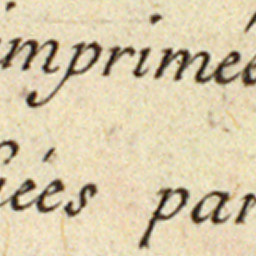 imprimée
iées par